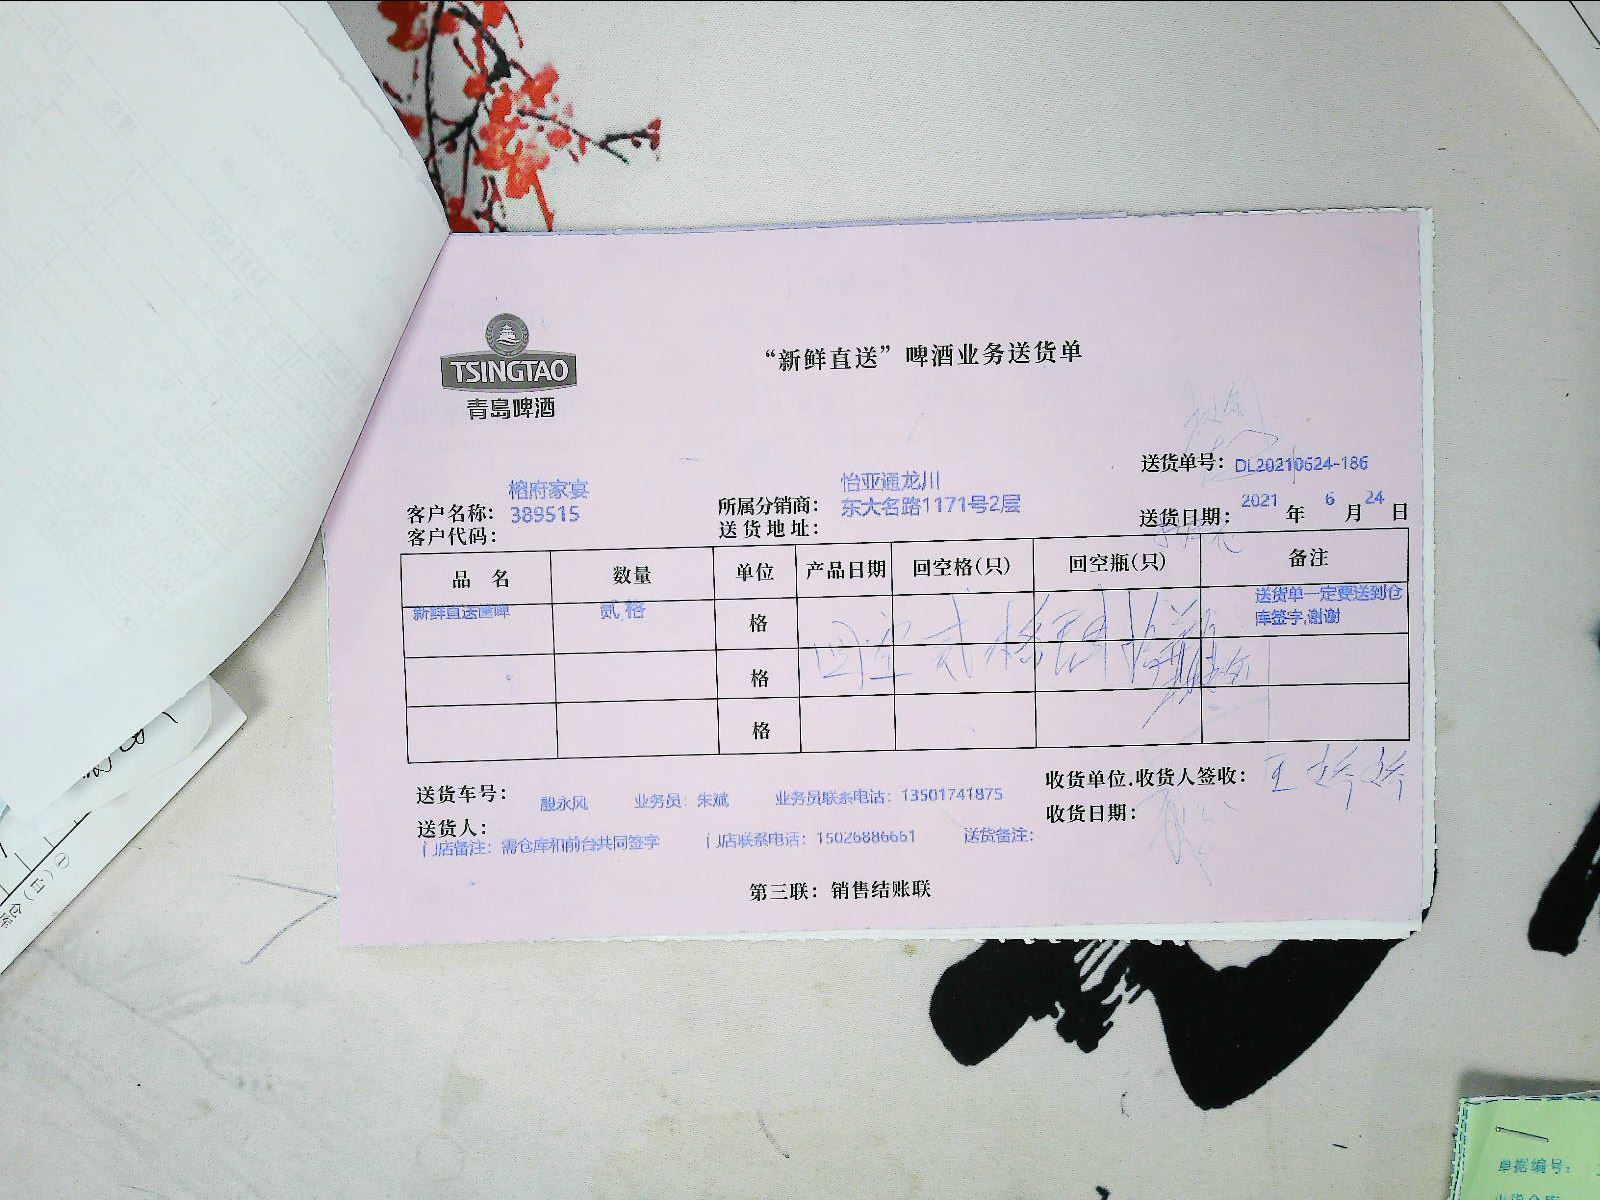 TSINGTAO
青岛啤酒
“新鲜直送”啤酒业务送货单
送货单号：DL20210624-186
榕府家宴
怡亚通龙川
客户名称：389515
所属分销商：东大名路1171号2层
客户代码：
送货地址：
送货日期：2021年6月24日
品名 数量 单位 产品日期 回空格(只) 回空瓶(只) 备注
新鲜直送 贰格 格 送货单一定要送到仓
库签字,谢谢
回空 贰格
格
格
送货车号：殷永风 业务员：朱斌 业务员联系电话：13501741875
收货单位.收货人签收：王
送货人：
收货日期：
门店备注：需仓库和前台共同签字 门店联系电话：15026886661 送货备注：
第三联：销售结账联
单据编号：